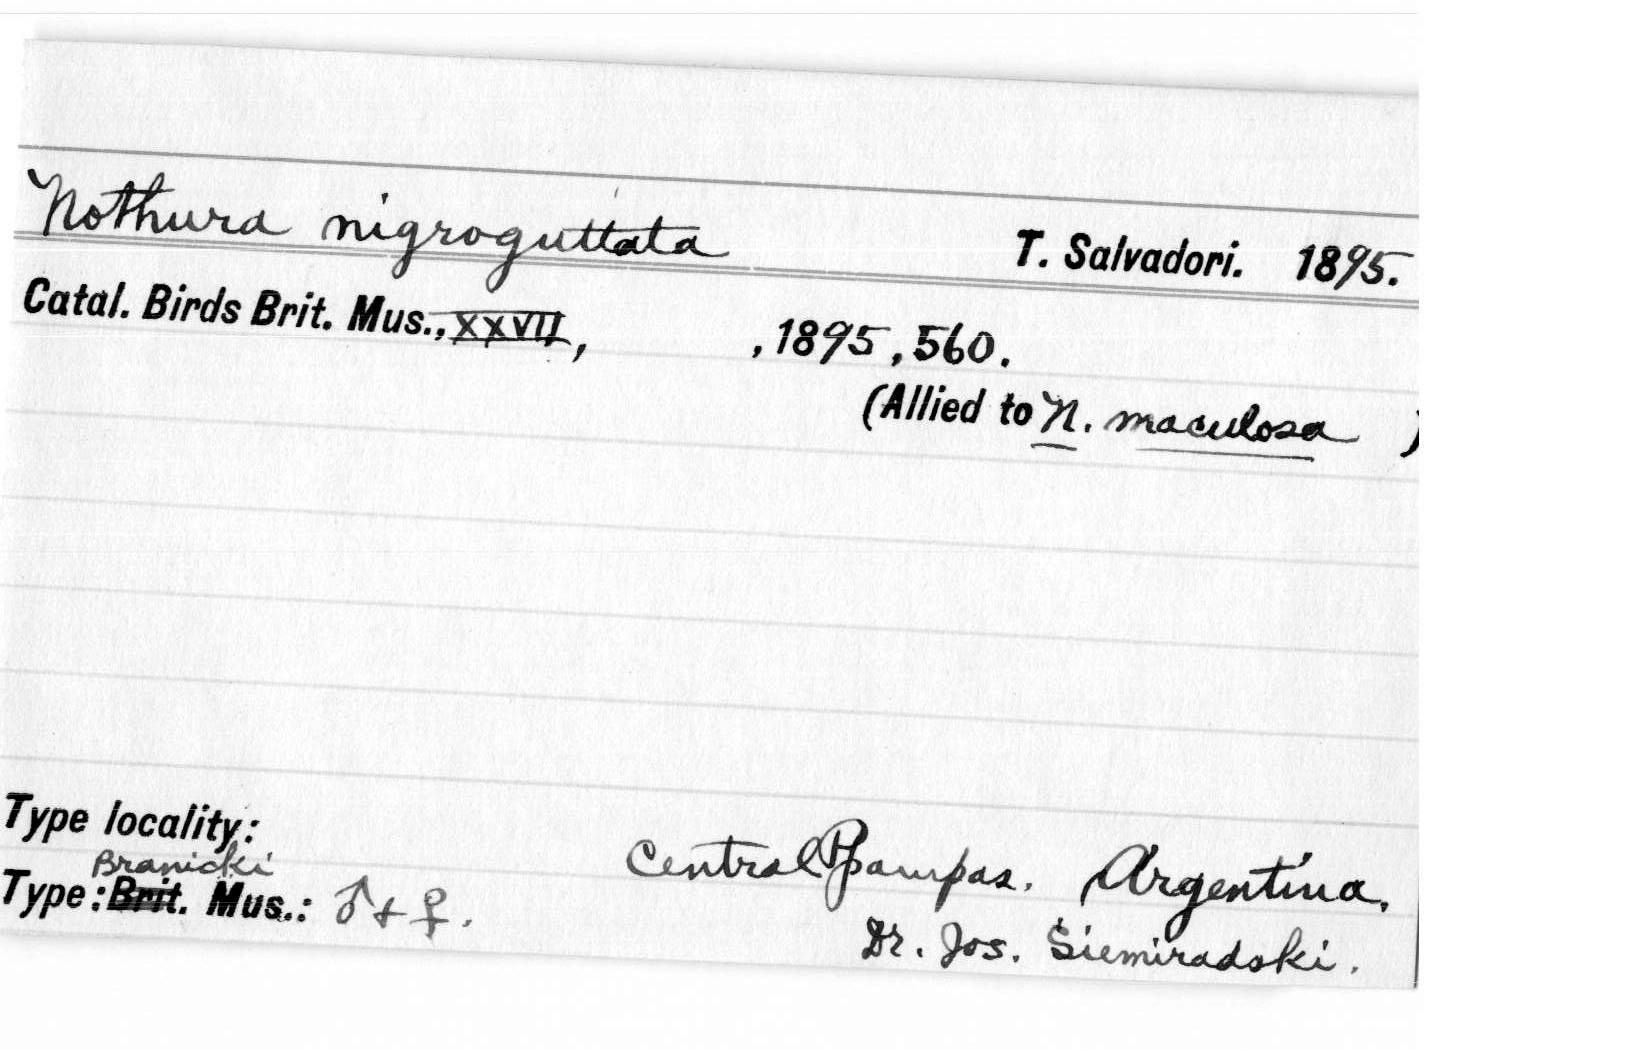 Nothura nigroguttata T. Salvadori. 1895.
Catal. Birds Brit. Mus., XXVII, , 1895, 560.
(Allied to N. maculosa )
Type locality:
Central Pampas. Argentina.
Branicki
Type: Brit. Mus.: ♂ + ♀.
Dr. Jos. Siemiradski.